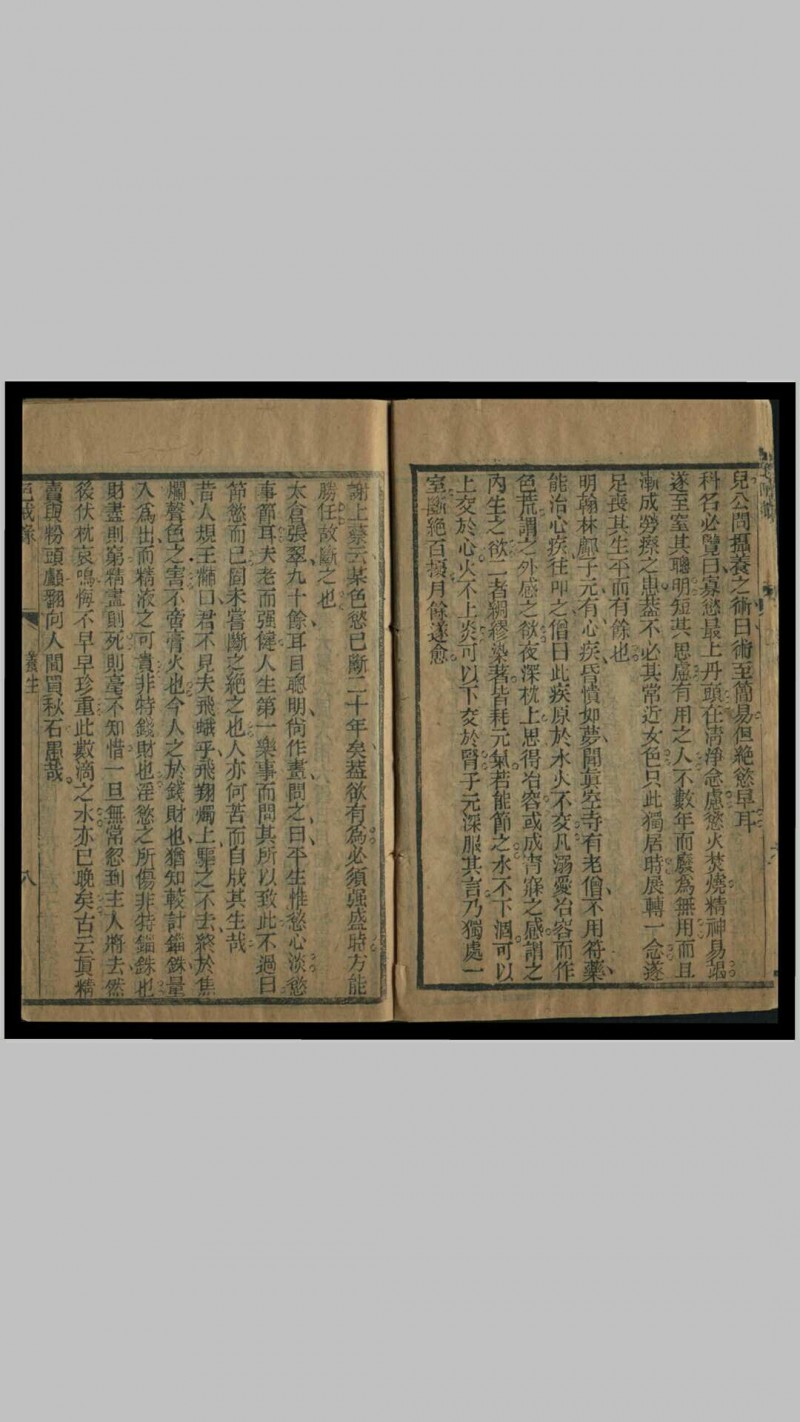 兒公問攝養之術曰術至簡易但絶慾早耳
科名必覽曰寡慾最上丹頭在清淨念慮慾火焚燒精神易竭
遂至窒其聰明短其思慮有用之人不數年而廢為無用而且
漸成勞瘵之患葢不必其常近女色只此獨居時展轉一念遂
足喪其生平而有餘也
明翰林鄺子元有心疾昏憒如夢聞真空寺有老僧不用符藥
能治心疾往叩之僧曰此疾原於水火不交凡溺愛冶容而作
色荒謂之外感之慾夜深枕上思得冶容或成宵寐之感謂之
內生之欲二者綢繆染著皆耗元氣若能節之水不下涸可以
上交於心火不上炎可以下交於腎子元深服其言乃獨處一
室斷絶百擾月餘遂愈
謝上蔡云某色慾已斷二十年矣葢欲有為必須强盛時方能
勝任故斷之也
太倉張翠九十餘耳目聰明尙作畫問之曰平生惟慾心淡慾
事節耳夫老而强健人生第一樂事而問其所以致此不過曰
節慾而已固未嘗斷之絶之也人亦何苦而自戕其生哉
昔人規王黼曰君不見夫飛蛾乎飛翔燭上驅之不去終於焦
爛聲色之害不啻膏火也今人之於錢財也猶知較計錙銖量
入為出而精液之可貴非特錢財也淫慾之所傷非特錙銖也
財盡則窮精盡則死則毫不知惜一旦無常忽到主人將去然
後伏枕哀鳴悔不早早珍重此數滴之水亦已晚矣古云真精
賣與粉頭顱翻向人間買秋石愚哉
色戒錄
養生
八